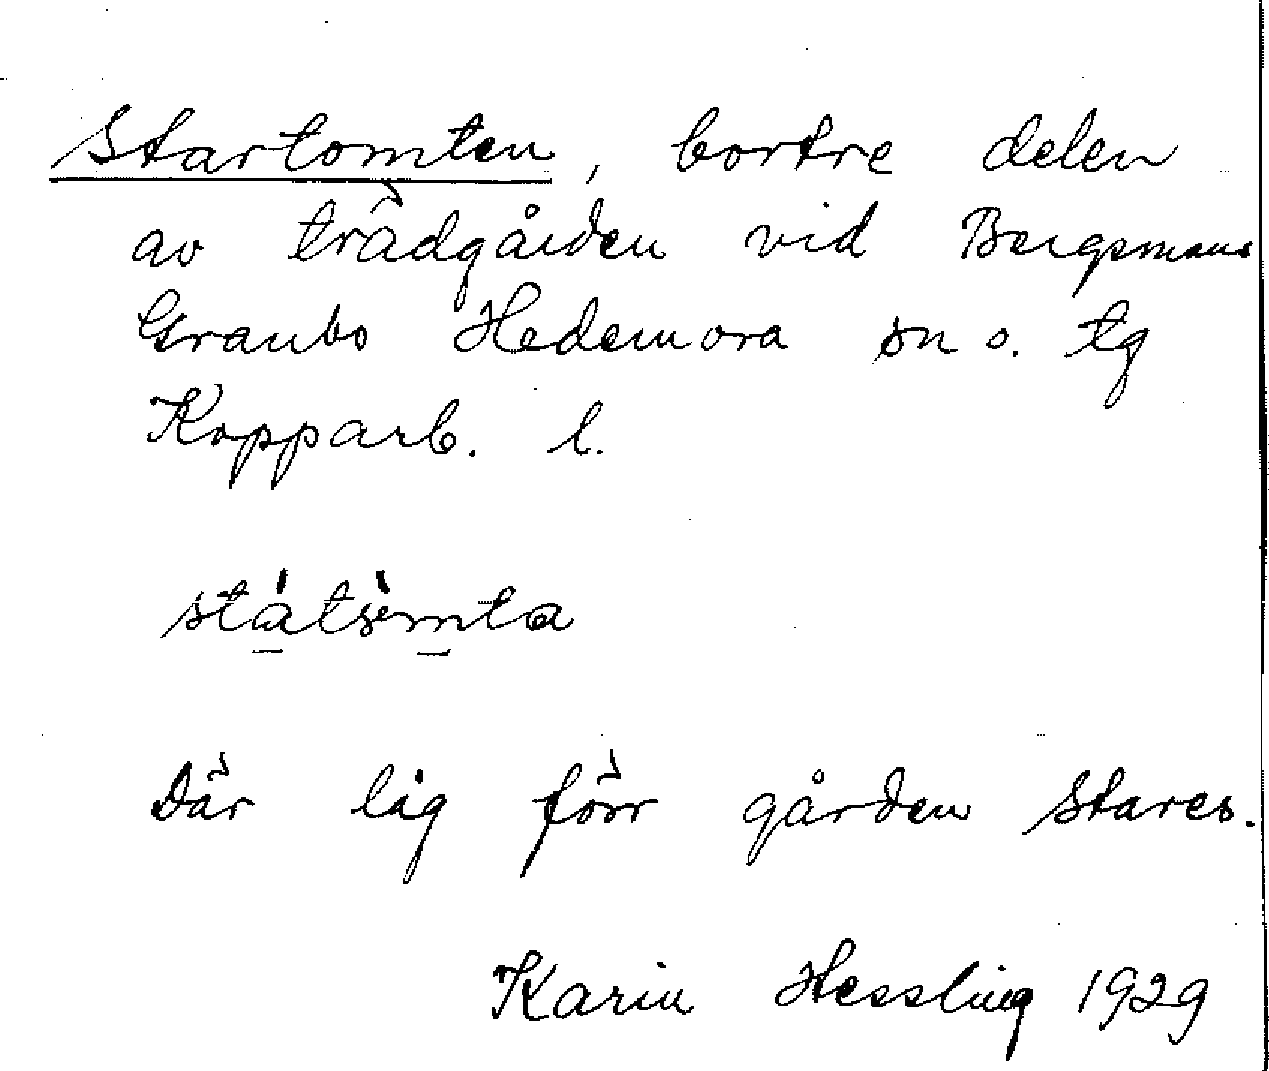 Startomten, bortre delen
av trädgården vid Bergsmans
Granbo Hedemora sn o. tg
Kopparb. l.
Där låg förr gården Stares.
Karin Hessling 1929